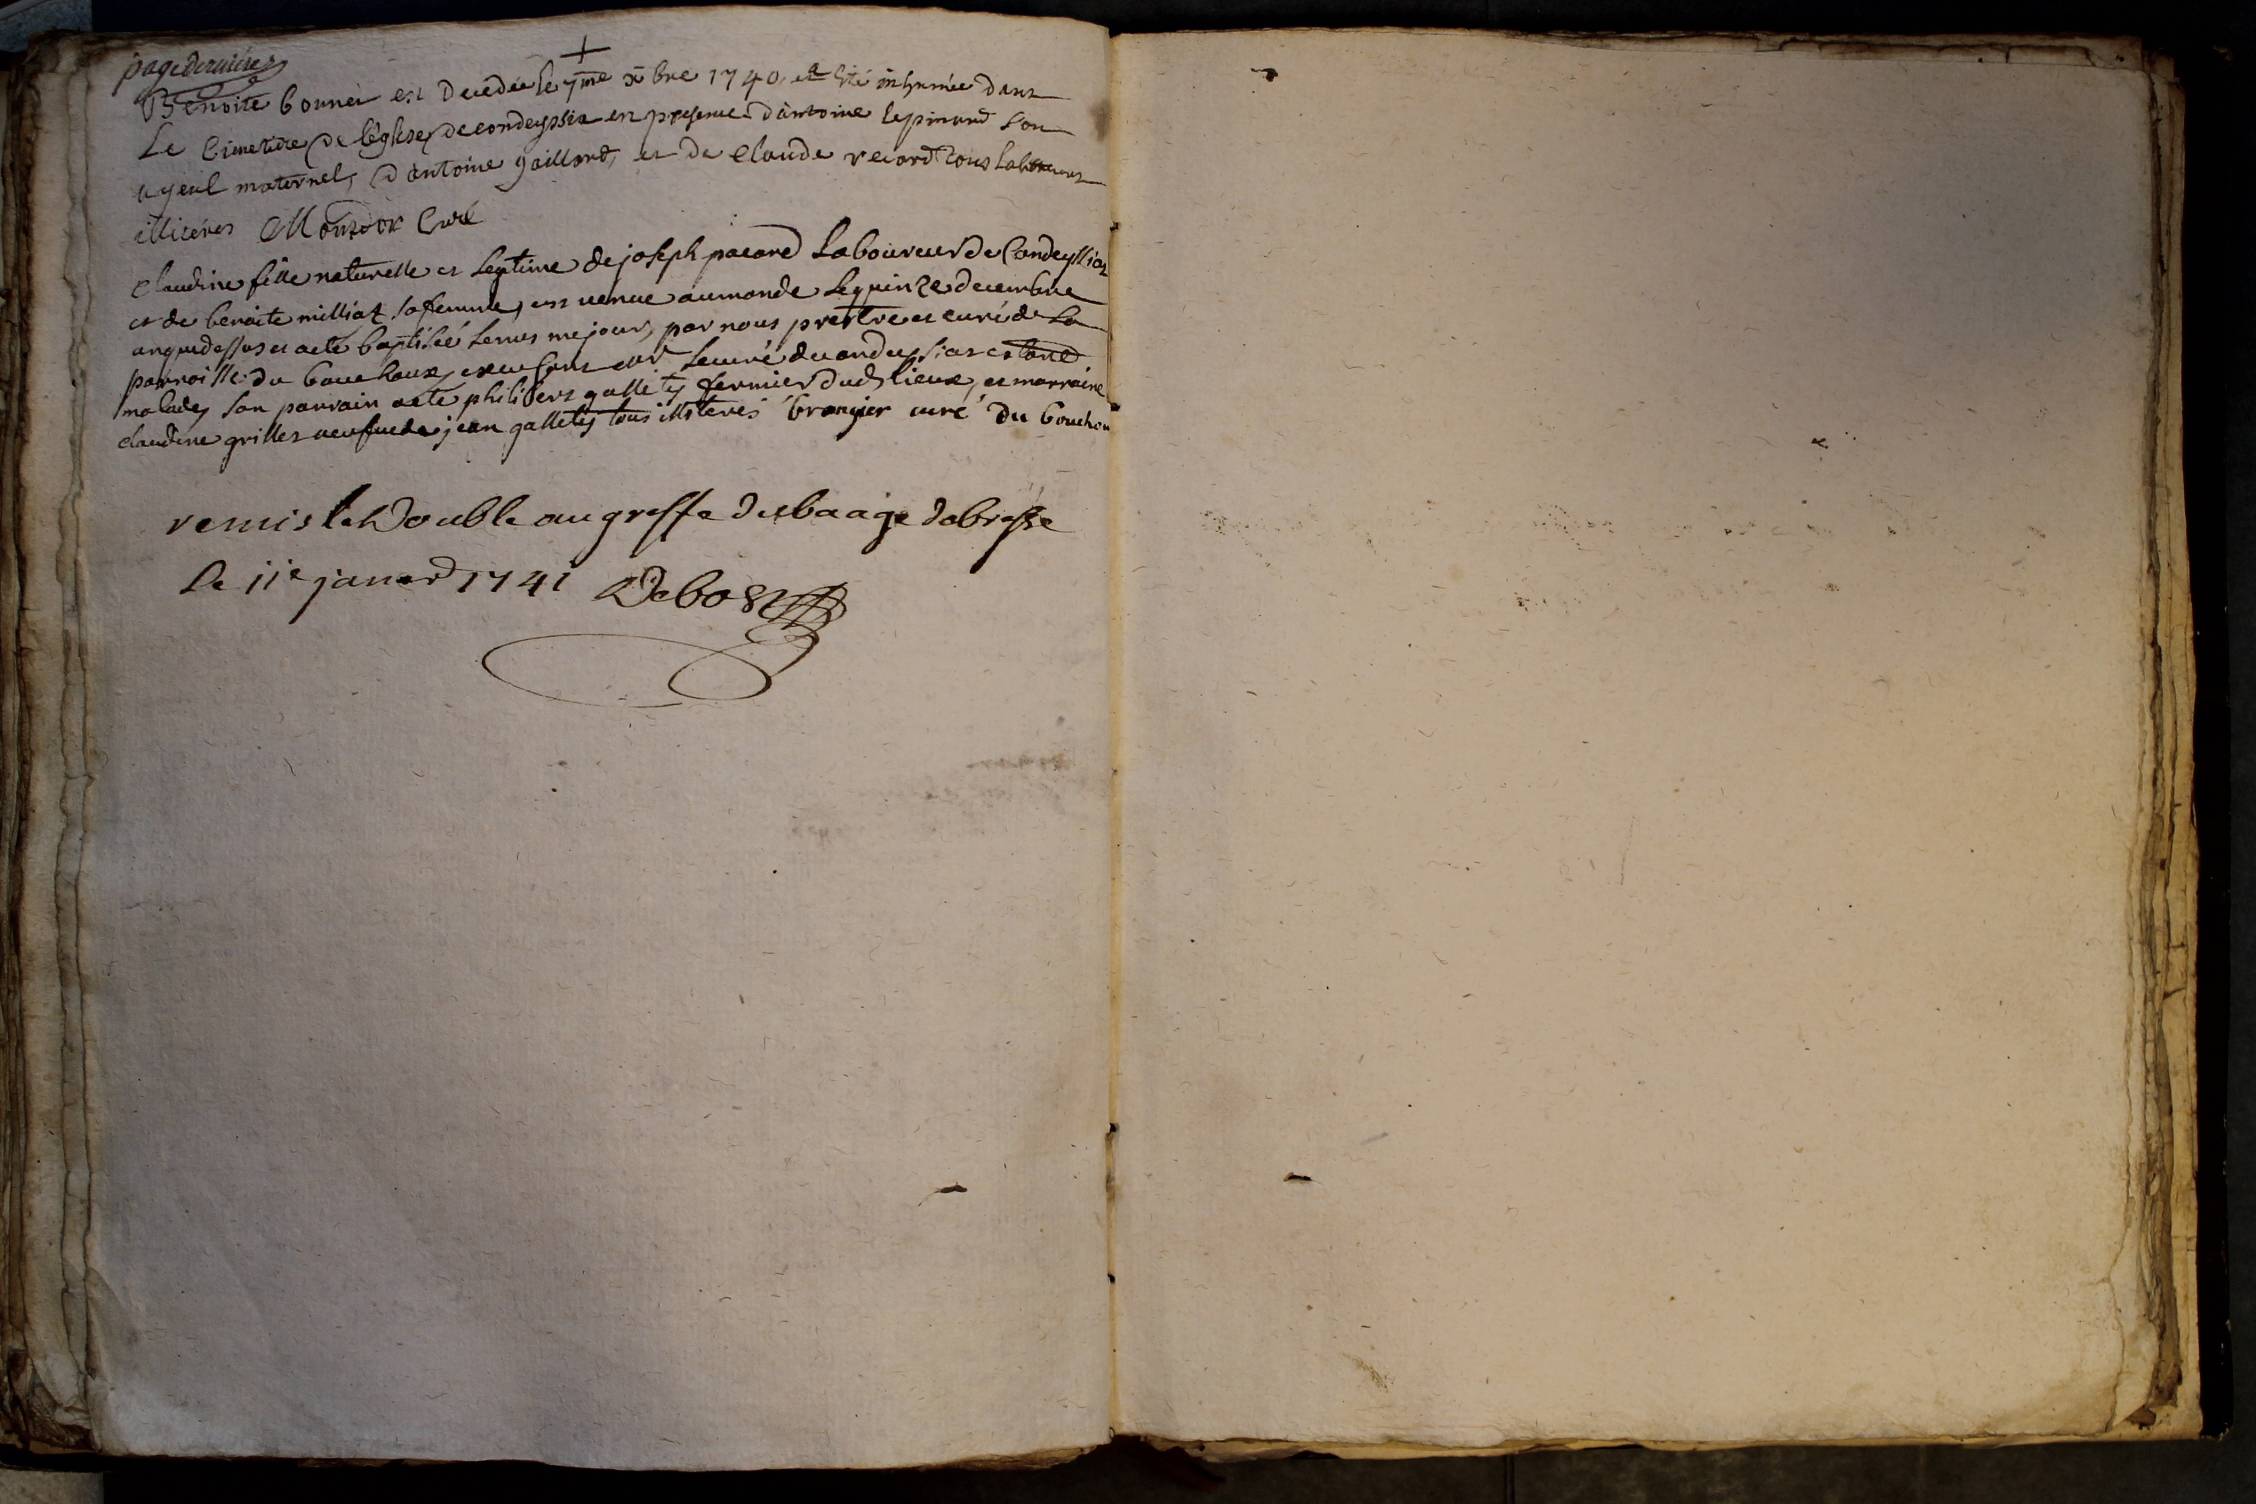 page derniere
+
Benoite bonnet est decedée le 7me xbre 1740 et a été inhumée dans
Le Cimetière de l'église de condeyssia en presence d'antoine lepinard son
ayeul maternel, d'antoine gaillard, et de claude recard tous laboureurs
illiterés Monsoor Curé
Claudine fille naturelle et legitime de joseph pacard Laboureur de Condeyssiat
et de benoite milliat sa femme, est venue au monde le quinze decembre
an que dessus et a eté baptisée le mesme jour, par nous prestre et curé de la
parroisse du bouchoux, en l'absence Mr le curé de condeyssiat estant
malade, son parrain a eté philibert gallety fermier dud. lieux, et marraine
claudine grillet veufve de jean gallety tous illiterés brangier curé du bouchou
remis le Double au greffe du baage de bresse
Le 11e janer 1741 Debost